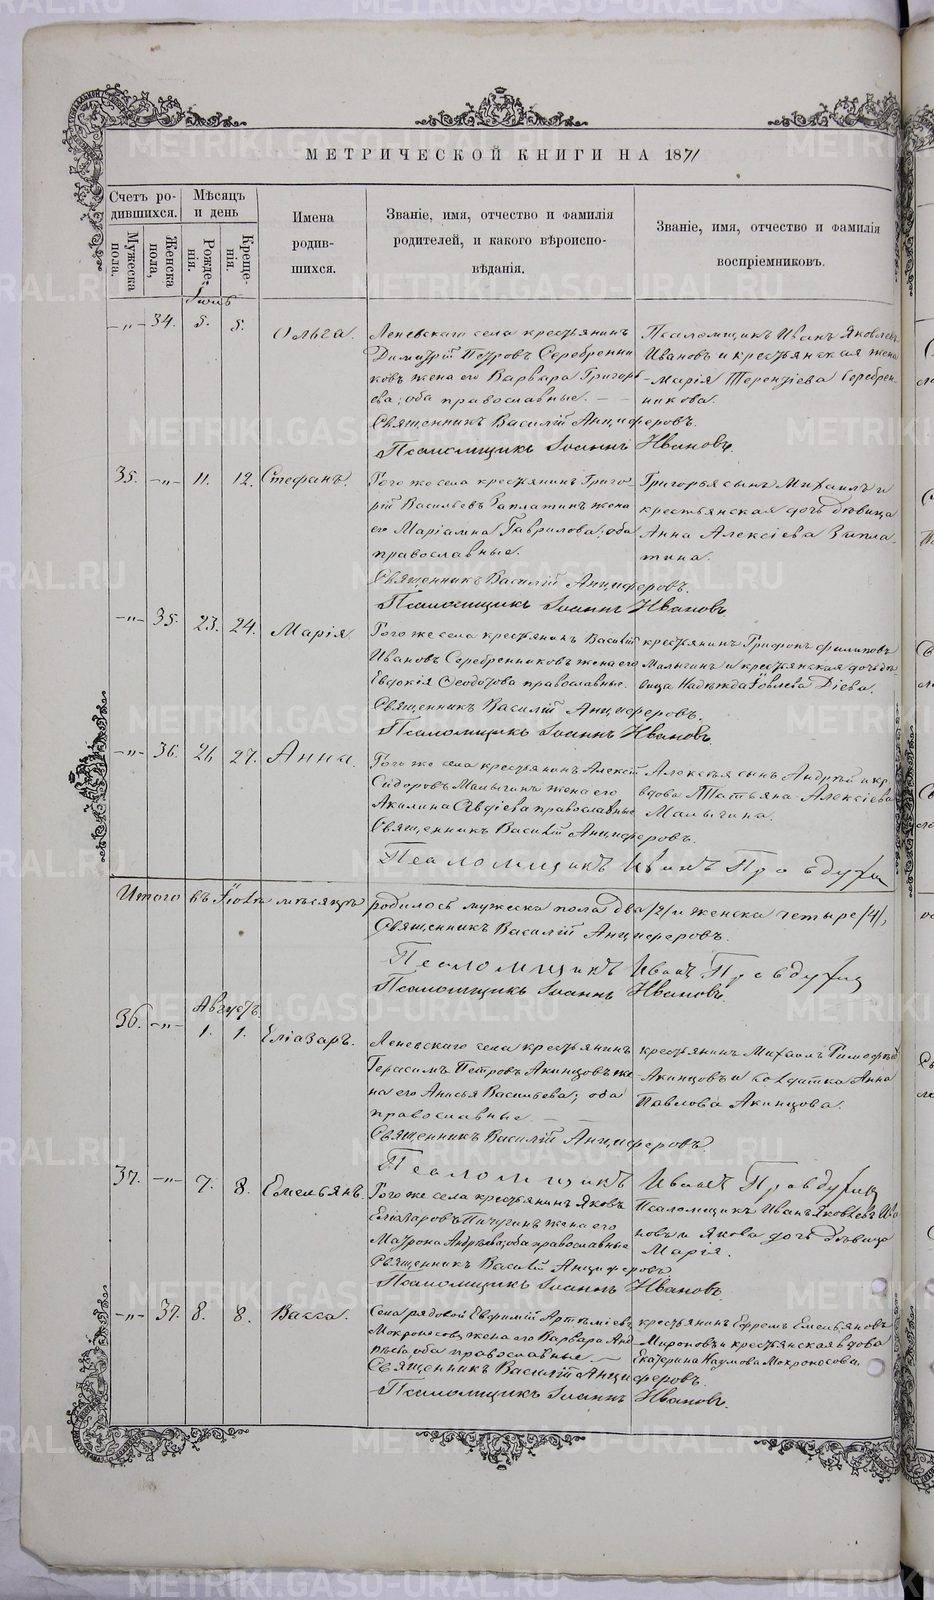 МЕТРИЧЕСКОЙ КНИГИ НА 1871
Счетъ ро-
дившихся.
Мужеска пола.
Женска пола,
Мѣсяцъ
и день
Рожде-
нія.
Креще-
нія.
Имена
родив-
шихся.
Званіе, имя, отчество и фамилія
родителей, и какого вѣроиспо-
вѣданія.
Званіе, имя, отчество и фамилія
воспріемниковъ.
Іюль
-„- 34. 5. 5. Ольга.
Леневскаго села крестьянинъ
Димитрій Петровъ Серебренни
ковъ жена его Варвара Григорь
ева; оба православные. - -
Псаломщикъ Иванъ Яковлевъ
Ивановъ и крестьянская жена
Марія Терентіева Серебрен-
никова.
Священникъ Василій Анциферовъ.
Псаломщикъ Іоаннъ Ивановъ.
35. -„- 11. 12. Стефанъ.
Того же села крестьянинъ Григо-
рій Васильевъ Заплатинъ жена
его Маріамна Гаврилова; оба
православные.
Григорья сынъ Михаилъ и
крестьянская дочь дѣвица
Анна Алексіева Запла-
тина.
Священникъ Василій Анциферовъ.
Псаломщикъ Іоаннъ Ивановъ
-„- 35. 23. 24. Марія
Того же села крестьянинъ Василій
Ивановъ Серебренниковъ жена его
Евдокія Феодотова православные.
крестьянинъ Трифонъ Филиповъ
Малыгинъ и крестьянская дочь дѣ-
вица Надежда Іовлева Діева.
Священникъ Василій Анциферовъ.
Псаломщикъ Іоаннъ Ивановъ.
-„- 36. 26 27. Анна.
Того же села крестьянинъ Алексій
Сидоровъ Малыгинъ жена его
Акилина Авдіева православные
Алексія сынъ Андрей и кр.
вдова Татьяна Алексіева
Малыгина.
Священникъ Василій Анциферовъ.
Псаломщикъ Иванъ Правдухин
Итого въ Іюлѣ мѣсяцѣ родилось мужеска пола два /2/ и женска четыре /4/,
Священникъ Василій Анциферовъ.
Псаломщикъ Иванъ Правдухин
Псаломщикъ Іоаннъ Ивановъ.
Августъ.
36. -„- 1. 1. Еліазаръ.
Леневскаго села крестьянинъ
Герасимъ Петровъ Акинцовъ же
на его Анисья Васильева; оба
православные -
крестьянинъ Михаилъ Тимофѣевъ
Акинцовъ и солдатка Анна
Павлова Акинцова.
Священникъ Василій Анциферовъ
Псаломщикъ Иванъ Правдухин
37. -„- 7. 8. Емельянъ.
Того же села крестьянинъ Яковъ
Еліазаровъ Пичугинъ жена его
Матрона Андреева; оба православные
Псаломщикъ Иванъ Яковлевъ Ива
новъ и Якова дочь дѣвица
Марія.
Священникъ Василій Анциферовъ
Псаломщикъ Іоаннъ Ивановъ.
-„- 37. 8. 8. Васса.
Села рядовой Евфимій Артеміевъ
Мокроносовъ, жена его Варвара Анд
реева, оба православные -
крестьянинъ Ефремъ Емельяновъ
Мироновъ и крестьянская вдова
Екатерина Наумова Мокроносова.
Священникъ Василій Анциферовъ.
Псаломщикъ Іоаннъ Ивановъ.
METRIKI.GASO-URAL.RU